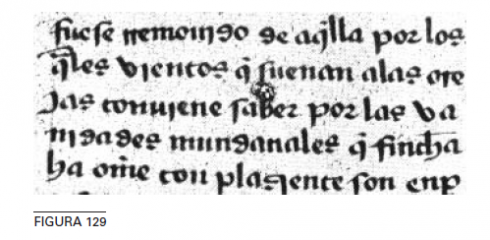 fuese rremoujdo de aq̃lla por los
q̃les vientos q̃ suenan alas ore
jas conujene saber por las va
nidades mundanales q̃ fincha
ha om̃e con plaziente son enp
FIGURA 129